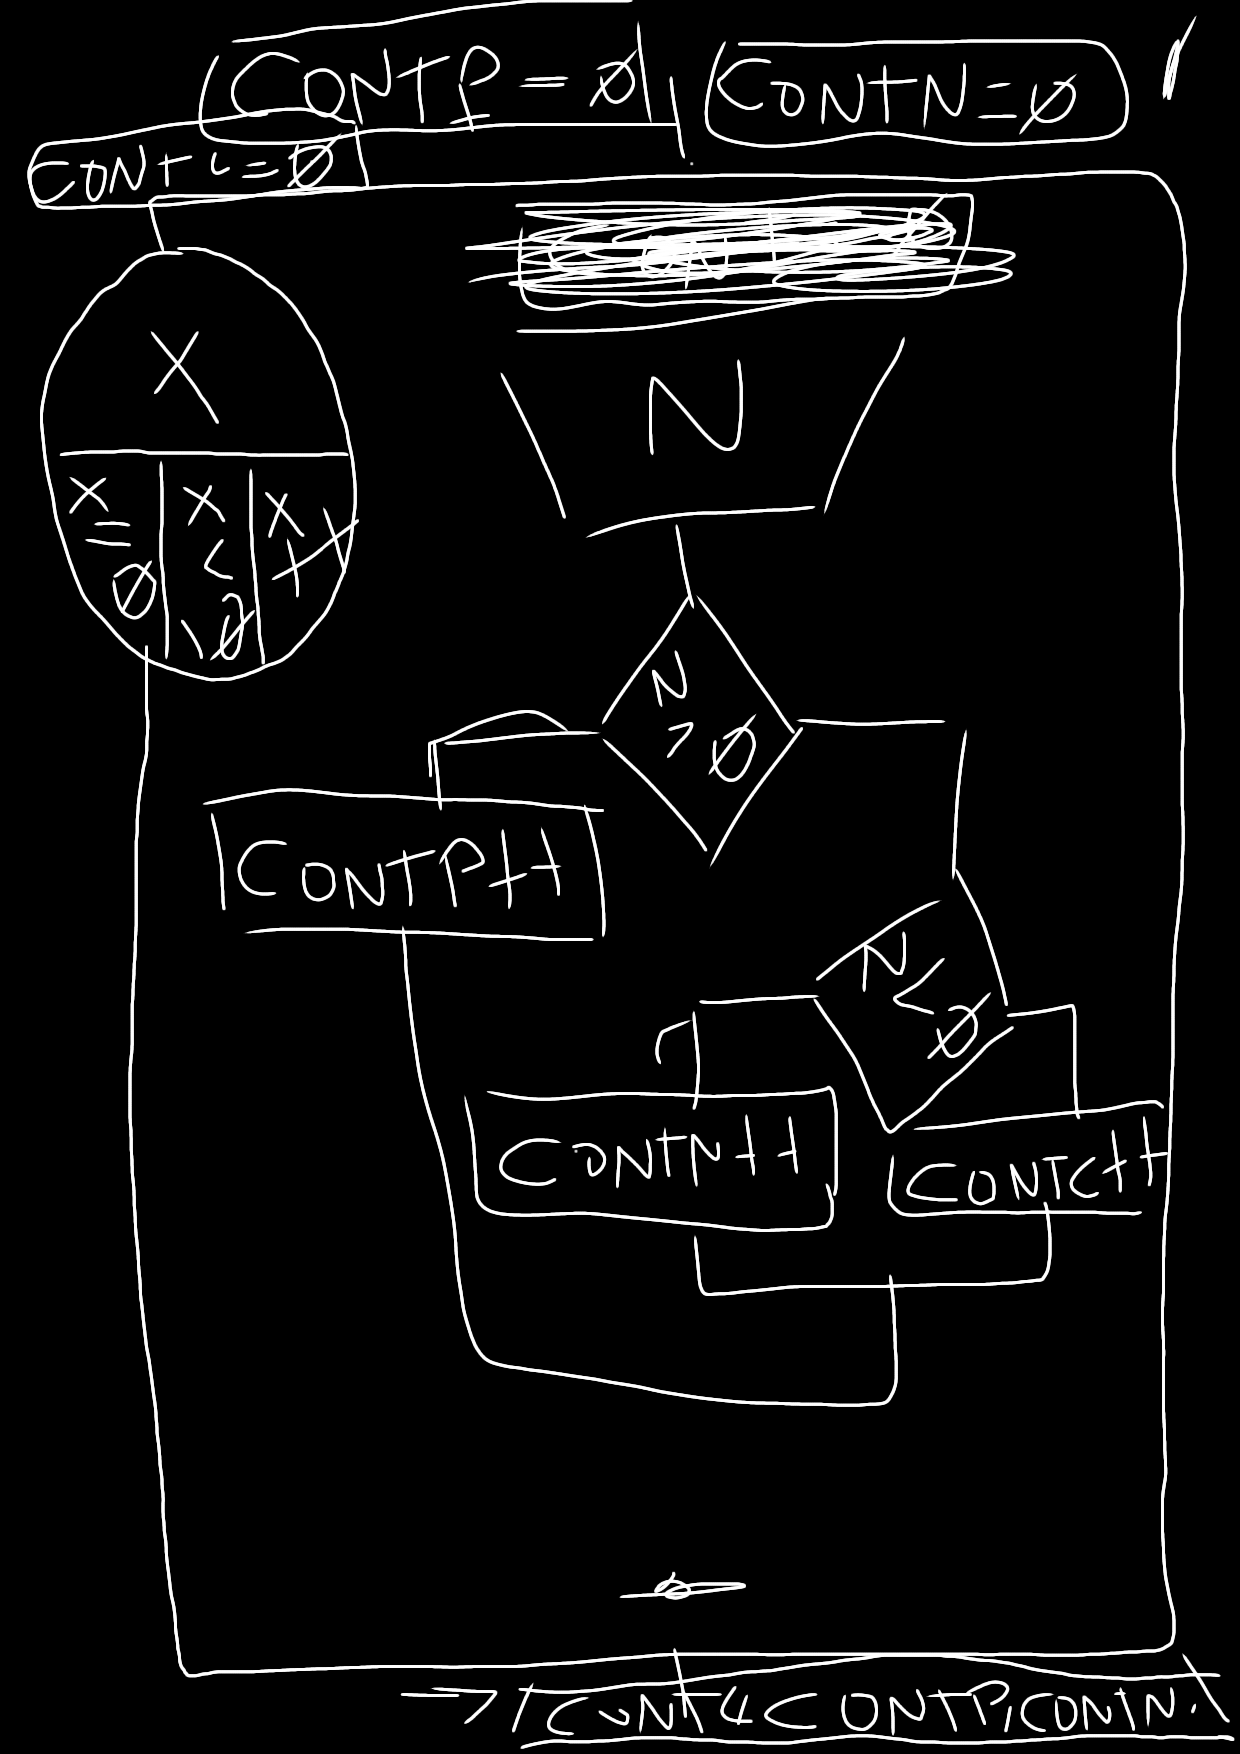 CONTP=0
CONTN=0
CONTC=0
X
X=0
X<10
X++
N
N>0
CONTP++
N<0
CONTN++
CONTC++
CONTP, CONTN